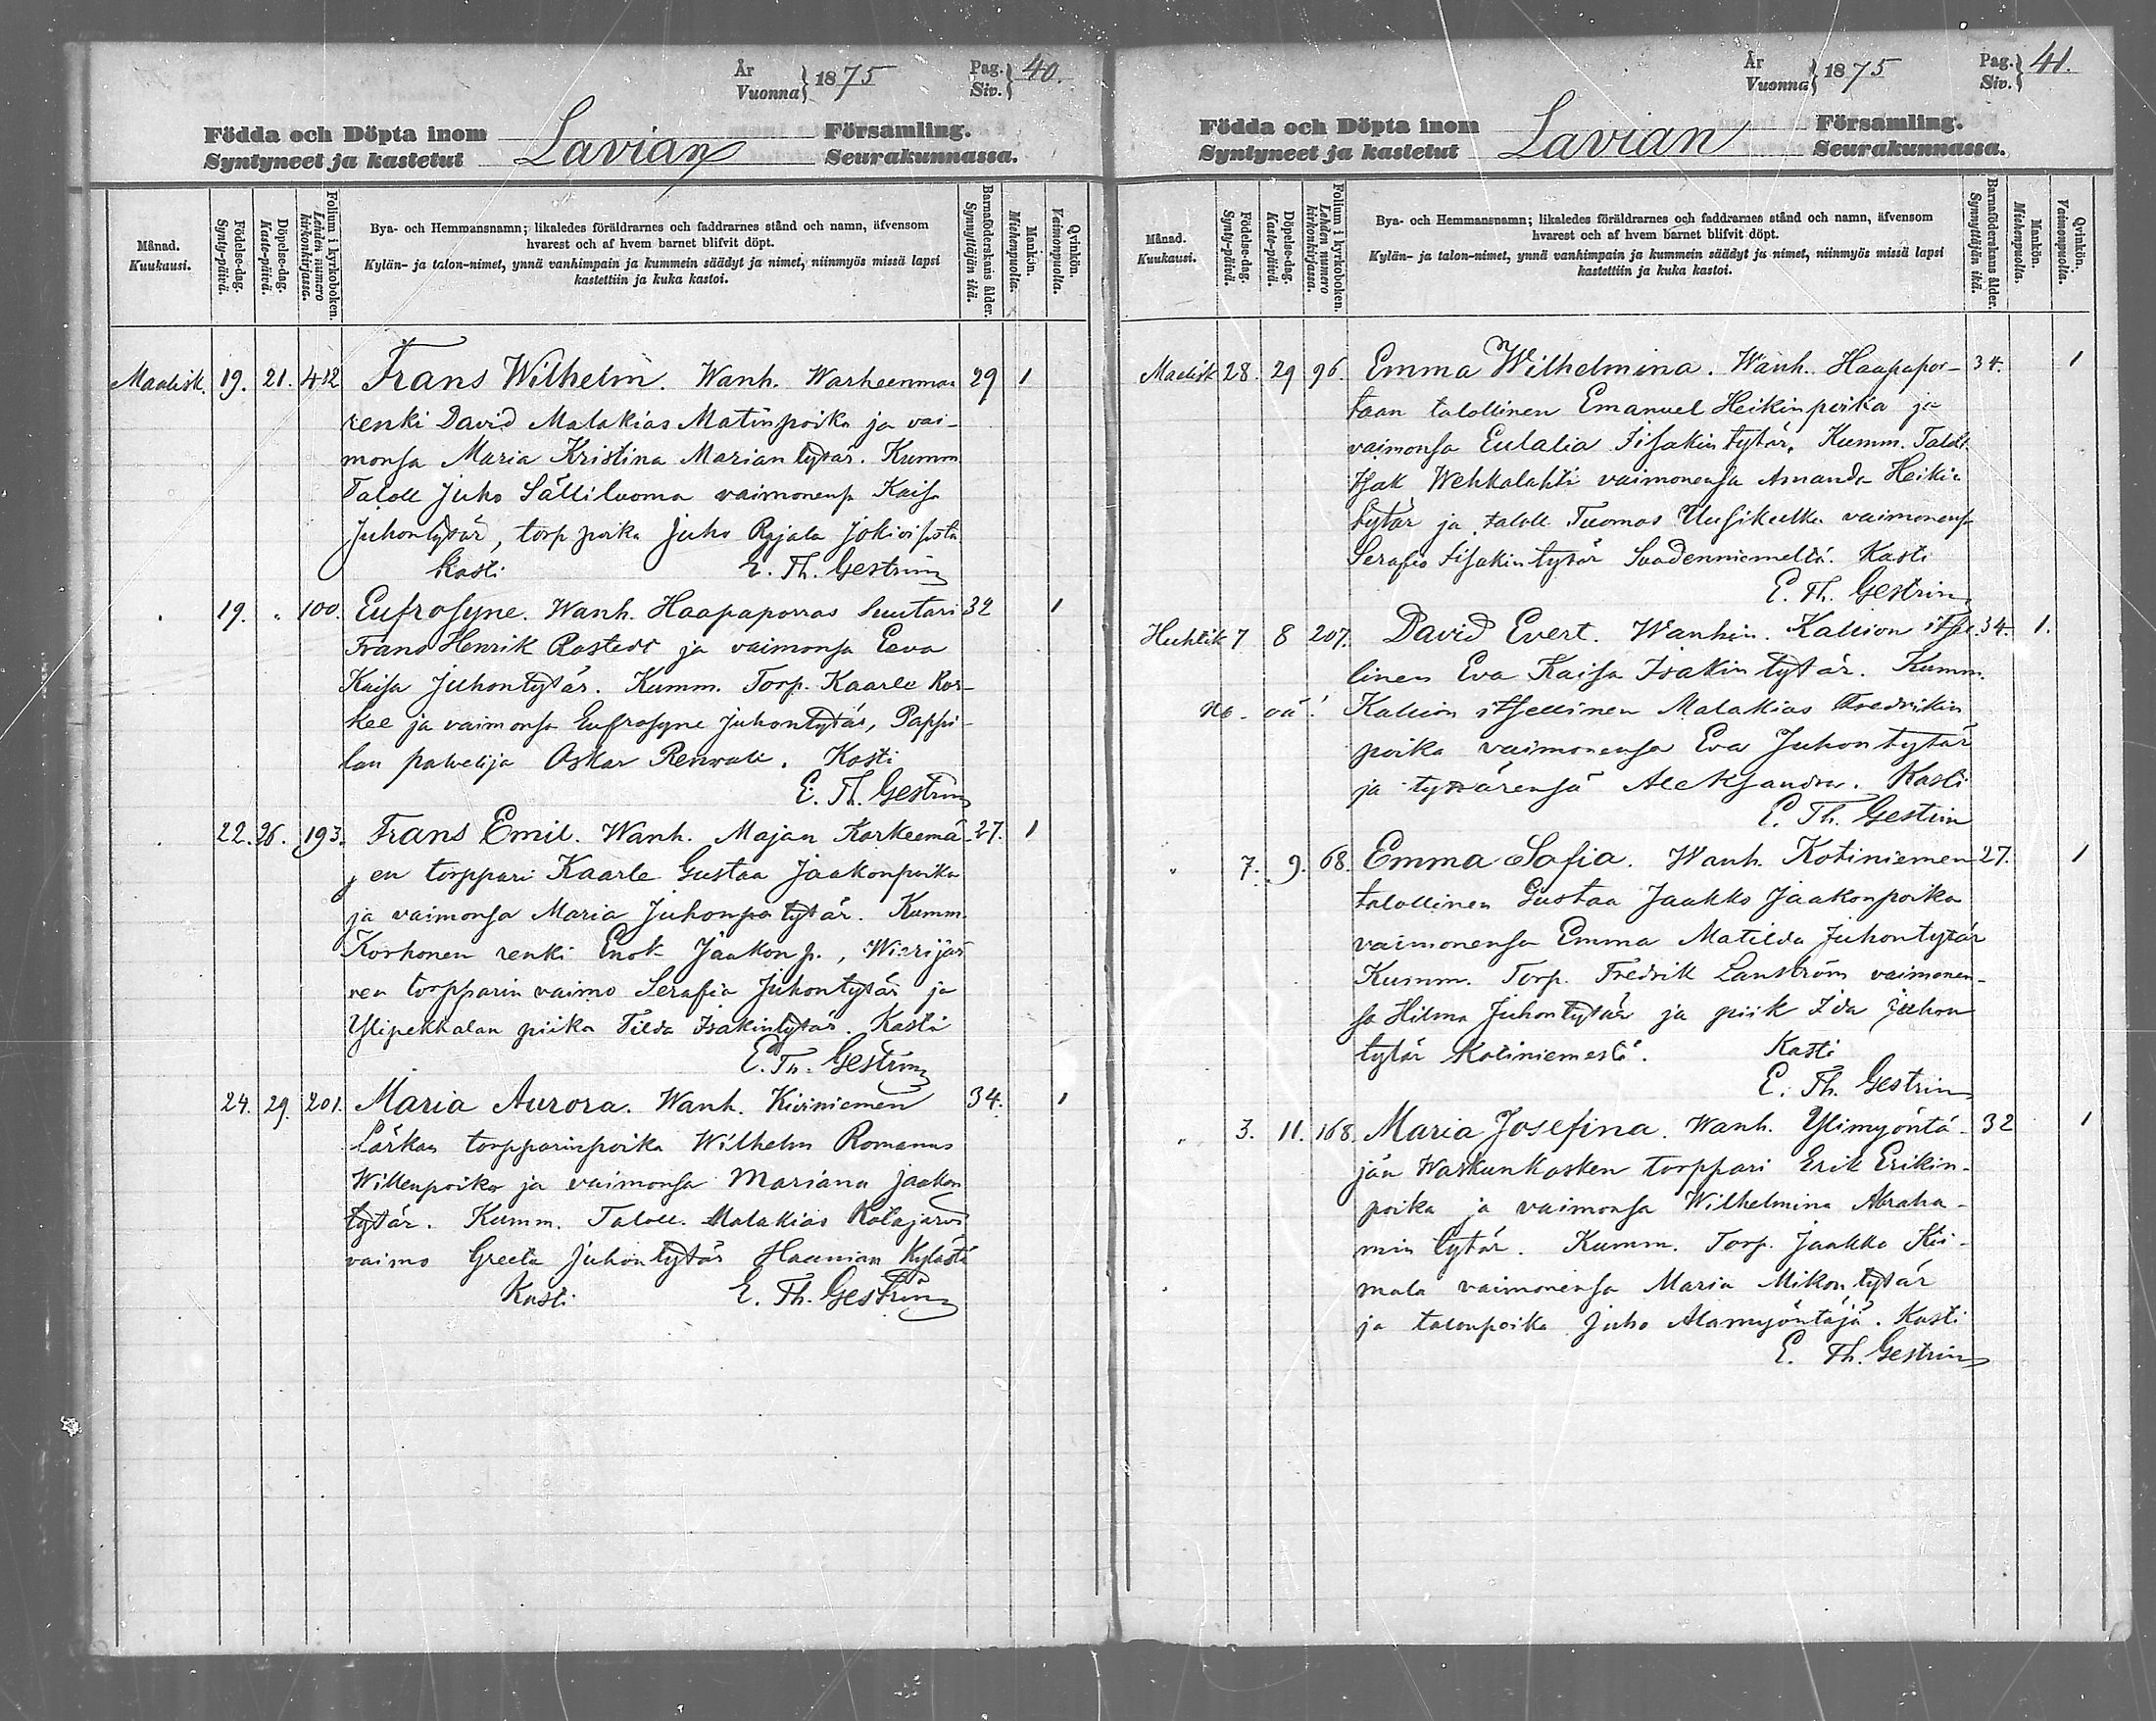 År
Vuonna } 1875
Pag.
Siv. } 40.
Födda och Döpta inom
Syntyneet ja kastetut
Lavian
Församling.
Seurakunnassa.
Månad.
Kuukausi.
Födelse-dag.
Synty-päivä.
Döpelse-dag.
Kaste-päivä.
Folium i kyrkoboken.
Lehden numero kirkonkirjassa.
Bya- och Hemmansnamn; likaledes föräldrarnes och faddrarnes stånd och namn, äfvensom
hvarest och af hvem barnet blifvit döpt.
Kylän- ja talon-nimet, ynnä vanhimpain ja kummein säädyt ja nimet, niinmyös missä lapsi
kastettiin ja kuka kastoi.
Barnaföderskans ålder.
Synnyttäjän ikä.
Mankön.
Miehenpuolta.
Qvinkön.
Vaimonpuolta.
Maalisk. 19. 21. 412 Frans Wilhelm. Wanh. Warheenmaa 29 1
renki David Malakias Matinpoika ja vai-
monsa Maria Kristina Mariantytär. Kumm
Taloll Juho Sälliluoma vaimonensa Kaisa
Juhontytär, torp poika Juho Rajala Jokioisista
Kasti E. Th. Gestrin
19. " 100. Eufrosyne. Wanh. Haapaporras Suutari 32 1
Frans Henrik Rostedt ja vaimonsa Eeva
Kaisa Juhontytär. Kumm. Torp. Kaarle Kor-
kee ja vaimonsa Eufrosyne Juhontytär, Pappi-
lan palvelija Oskar Renvall. Kasti
E. Th. Gestrin
22. 26. 193. Frans Emil. Wanh. Majan Korkeemä- 27. 1
jen torppari Kaarle Gustaa Jaakonpoika
ja vaimonsa Maria Juhontytär. Kumm.
Korhonen renki Enok Jaakonp., Wierijär
ven torpparin vaimo Serafia Juhontytär ja
Ylipekkalan piika Tilda Isakintytär. Kasti
E. Th. Gestrin
24. 29. 201. Maria Aurora. Wanh. Kiviniemen 34. 1
Lärkan torpparinpoika Wilhelm Romanus
Willenpoika ja vaimonsa Mariana Jaakon
tytär. Kumm. Taloll. Malakias Kolajärvi
vaimo Greeta Juhontytär Haunian Kylästä
Kasti E. Th. Gestrin
År
Vuonna } 1875
Pag.
Siv. } 41.
Födda och Döpta inom
Syntyneet ja kastetut
Lavian
Församling.
Seurakunnassa.
Månad.
Kuukausi.
Födelse-dag.
Synty-päivä.
Döpelse-dag.
Kaste-päivä.
Folium i kyrkoboken.
Lehden numero kirkonkirjassa.
Bya- och Hemmansnamn; likaledes föräldrarnes och faddrarnes stånd och namn, äfvensom
hvarest och af hvem barnet blifvit döpt.
Kylän- ja talon-nimet, ynnä vanhimpain ja kummein säädyt ja nimet, niinmyös missä lapsi
kastettiin ja kuka kastoi.
Barnaföderskans ålder.
Synnyttäjän ikä.
Mankön.
Miehenpuolta.
Qvinkön.
Vaimonpuolta.
Maalisk 28. 29 96. Emma Wilhelmina. Wanh. Haapapor- 34. 1
taan talollinen Emanuel Heikinpoika ja
vaimonsa Eulalia Iisakintytär. Kumm. Taloll.
Isak Wehkalahti vaimonensa Amanda Heikin
tytär ja taloll. Tuomas Uusikulku vaimonensa
Serafia Iisakintytär Suodenniemeltä. Kasti
E. Th. Gestrin
Huhtik 7 8 207. David Evert. Wanhin. Kallion itsel 34. 1.
linen Eva Kaisa Isakintytär. Kumm.
Kallion itsellinen Malakias Fredrikin
poika vaimonensa Eva Juhontytär
ja tytärensä Aleksandra. Kasti
E. Th. Gestrin
" 7. 9. 68. Emma Sofia. Wanh. Kotiniemen 27. 1
talollinen Gustaa Jaakko Jaakonpoika
vaimonensa Emma Matilda Juhontytär
Kumm. Torp. Fredrik Lanström vaimonen-
sa Hilma Juhontytär ja piik Ida Juhon
tytär Kotiniemestä. Kasti
E. Th. Gestrin
" 3. 11. 168. Maria Josefina. Wanh. Ylimyöntä- 32 1
jän Waskunkosken torppari Erik Erikin-
poika ja vaimonsa Wilhelmina Abraha-
min tytär. Kumm. Torp. Jaakko Kii-
mala vaimonensa Maria Mikontytär
ja talonpoika Juho Alamyöntäjä. Kasti
E. Th. Gestrin